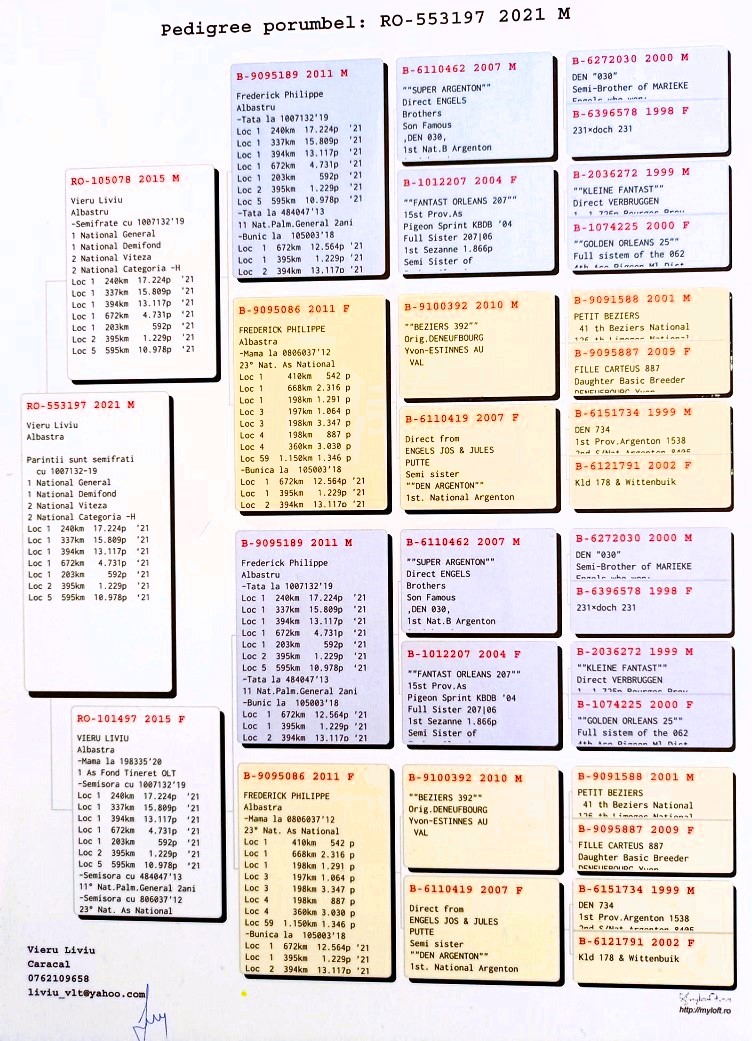 Pedigree porumbel: RO-553197 2021 M
RO-553197 2021 M
Vieru Liviu
Albastra
Parintii sunt semifrati
cu 1007132-19
1 National General
1 National Demifond
2 National Viteza
2 National Categoria -H
Loc 1 240km 17.224p '21
Loc 1 337km 15.809p '21
Loc 1 394km 13.117p '21
Loc 1 672km 4.731p '21
Loc 1 203km 592p '21
Loc 2 395km 1.229p '21
Loc 5 595km 10.978p '21
RO-105078 2015 M
Vieru Liviu
Albastru
-Semifrate cu 1007132'19
1 National General
1 National Demifond
2 National Viteza
2 National Categoria -H
Loc 1 240km 17.224p '21
Loc 1 337km 15.809p '21
Loc 1 394km 13.117p '21
Loc 1 672km 4.731p '21
Loc 1 203km 592p '21
Loc 2 395km 1.229p '21
Loc 5 595km 10.978p '21
RO-101497 2015 F
VIERU LIVIU
Albastra
-Mama la 198335'20
1 As Fond Tineret OLT
-Semisora cu 1007132'19
Loc 1 240km 17.224p '21
Loc 1 337km 15.809p '21
Loc 1 394km 13.117p '21
Loc 1 672km 4.731p '21
Loc 1 203km 592p '21
Loc 2 395km 1.229p '21
Loc 5 595km 10.978p '21
-Semisora cu 484047'13
11° Nat.Palm.General 2ani
-Semisora cu 806037'12
23° Nat. As National
B-9095189 2011 M
Frederick Philippe
Albastru
-Tata la 1007132'19
Loc 1 240km 17.224p '21
Loc 1 337km 15.809p '21
Loc 1 394km 13.117p '21
Loc 1 672km 4.731p '21
Loc 1 203km 592p '21
Loc 2 395km 1.229p '21
Loc 5 595km 10.978p '21
-Tata la 484047'13
11 Nat.Palm.General 2ani
-Bunic la 105003'18
Loc 1 672km 12.564p '21
Loc 1 395km 1.229p '21
Loc 2 394km 13.117p '21
B-9095086 2011 F
FREDERICK PHILIPPE
Albastra
-Mama la 0806037'12
23° Nat. As National
Loc 1 410km 542 p
Loc 1 668km 2.316 p
Loc 1 198km 1.291 p
Loc 3 197km 1.064 p
Loc 3 198km 3.347 p
Loc 4 198km 887 p
Loc 4 360km 3.030 p
Loc 59 1.150km 1.346 p
-Bunica la 105003'18
Loc 1 672km 12.564p '21
Loc 1 395km 1.229p '21
Loc 2 394km 13.117p '21
B-9095189 2011 M
Frederick Philippe
Albastru
-Tata la 1007132'19
Loc 1 240km 17.224p '21
Loc 1 337km 15.809p '21
Loc 1 394km 13.117p '21
Loc 1 672km 4.731p '21
Loc 1 203km 592p '21
Loc 2 395km 1.229p '21
Loc 5 595km 10.978p '21
-Tata la 484047'13
11 Nat.Palm.General 2ani
-Bunic la 105003'18
Loc 1 672km 12.564p '21
Loc 1 395km 1.229p '21
Loc 2 394km 13.117p '21
B-9095086 2011 F
FREDERICK PHILIPPE
Albastra
-Mama la 0806037'12
23° Nat. As National
Loc 1 410km 542 p
Loc 1 668km 2.316 p
Loc 1 198km 1.291 p
Loc 3 197km 1.064 p
Loc 3 198km 3.347 p
Loc 4 198km 887 p
Loc 4 360km 3.030 p
Loc 59 1.150km 1.346 p
-Bunica la 105003'18
Loc 1 672km 12.564p '21
Loc 1 395km 1.229p '21
Loc 2 394km 13.117p '21
B-6110462 2007 M
""SUPER ARGENTON""
Direct ENGELS
Brothers
Son Famous
,DEN 030,
1st Nat.B Argenton
B-1012207 2004 F
""FANTAST ORLEANS 207""
15st Prov.As
Pigeon Sprint KBDB '04
Full Sister 207|06
1st Sezanne 1.866p
Semi Sister of
B-9100392 2010 M
""BEZIERS 392""
Orig.DENEUFBOURG
Yvon-ESTINNES AU
VAL
B-6110419 2007 F
Direct from
ENGELS JOS & JULES
PUTTE
Semi sister
""DEN ARGENTON""
1st. National Argenton
B-6110462 2007 M
""SUPER ARGENTON""
Direct ENGELS
Brothers
Son Famous
,DEN 030,
1st Nat.B Argenton
B-1012207 2004 F
""FANTAST ORLEANS 207""
15st Prov.As
Pigeon Sprint KBDB '04
Full Sister 207|06
1st Sezanne 1.866p
Semi Sister of
B-9100392 2010 M
""BEZIERS 392""
Orig.DENEUFBOURG
Yvon-ESTINNES AU
VAL
B-6110419 2007 F
Direct from
ENGELS JOS & JULES
PUTTE
Semi sister
""DEN ARGENTON""
1st. National Argenton
B-6272030 2000 M
DEN "030"
Semi-Brother of MARIEKE
Engels who won:
B-6396578 1998 F
231×doch 231
B-2036272 1999 M
""KLEINE FANTAST""
Direct VERBRUGGEN
B-1074225 2000 F
""GOLDEN ORLEANS 25""
Full sistem of the 062
B-9091588 2001 M
PETIT BEZIERS
41 th Beziers National
B-9095887 2009 F
FILLE CARTEUS 887
Daughter Basic Breeder
DENEUFBOURG Yvon
B-6151734 1999 M
DEN 734
1st Prov.Argenton 1538
B-6121791 2002 F
Kld 178 & Wittenbuik
B-6272030 2000 M
DEN "030"
Semi-Brother of MARIEKE
Engels who won:
B-6396578 1998 F
231×doch 231
B-2036272 1999 M
""KLEINE FANTAST""
Direct VERBRUGGEN
B-1074225 2000 F
""GOLDEN ORLEANS 25""
Full sistem of the 062
B-9091588 2001 M
PETIT BEZIERS
41 th Beziers National
B-9095887 2009 F
FILLE CARTEUS 887
Daughter Basic Breeder
DENEUFBOURG Yvon
B-6151734 1999 M
DEN 734
1st Prov.Argenton 1538
B-6121791 2002 F
Kld 178 & Wittenbuik
Vieru Liviu
Caracal
0762109658
liviu_vlt@yahoo.com
http://myloft.ro